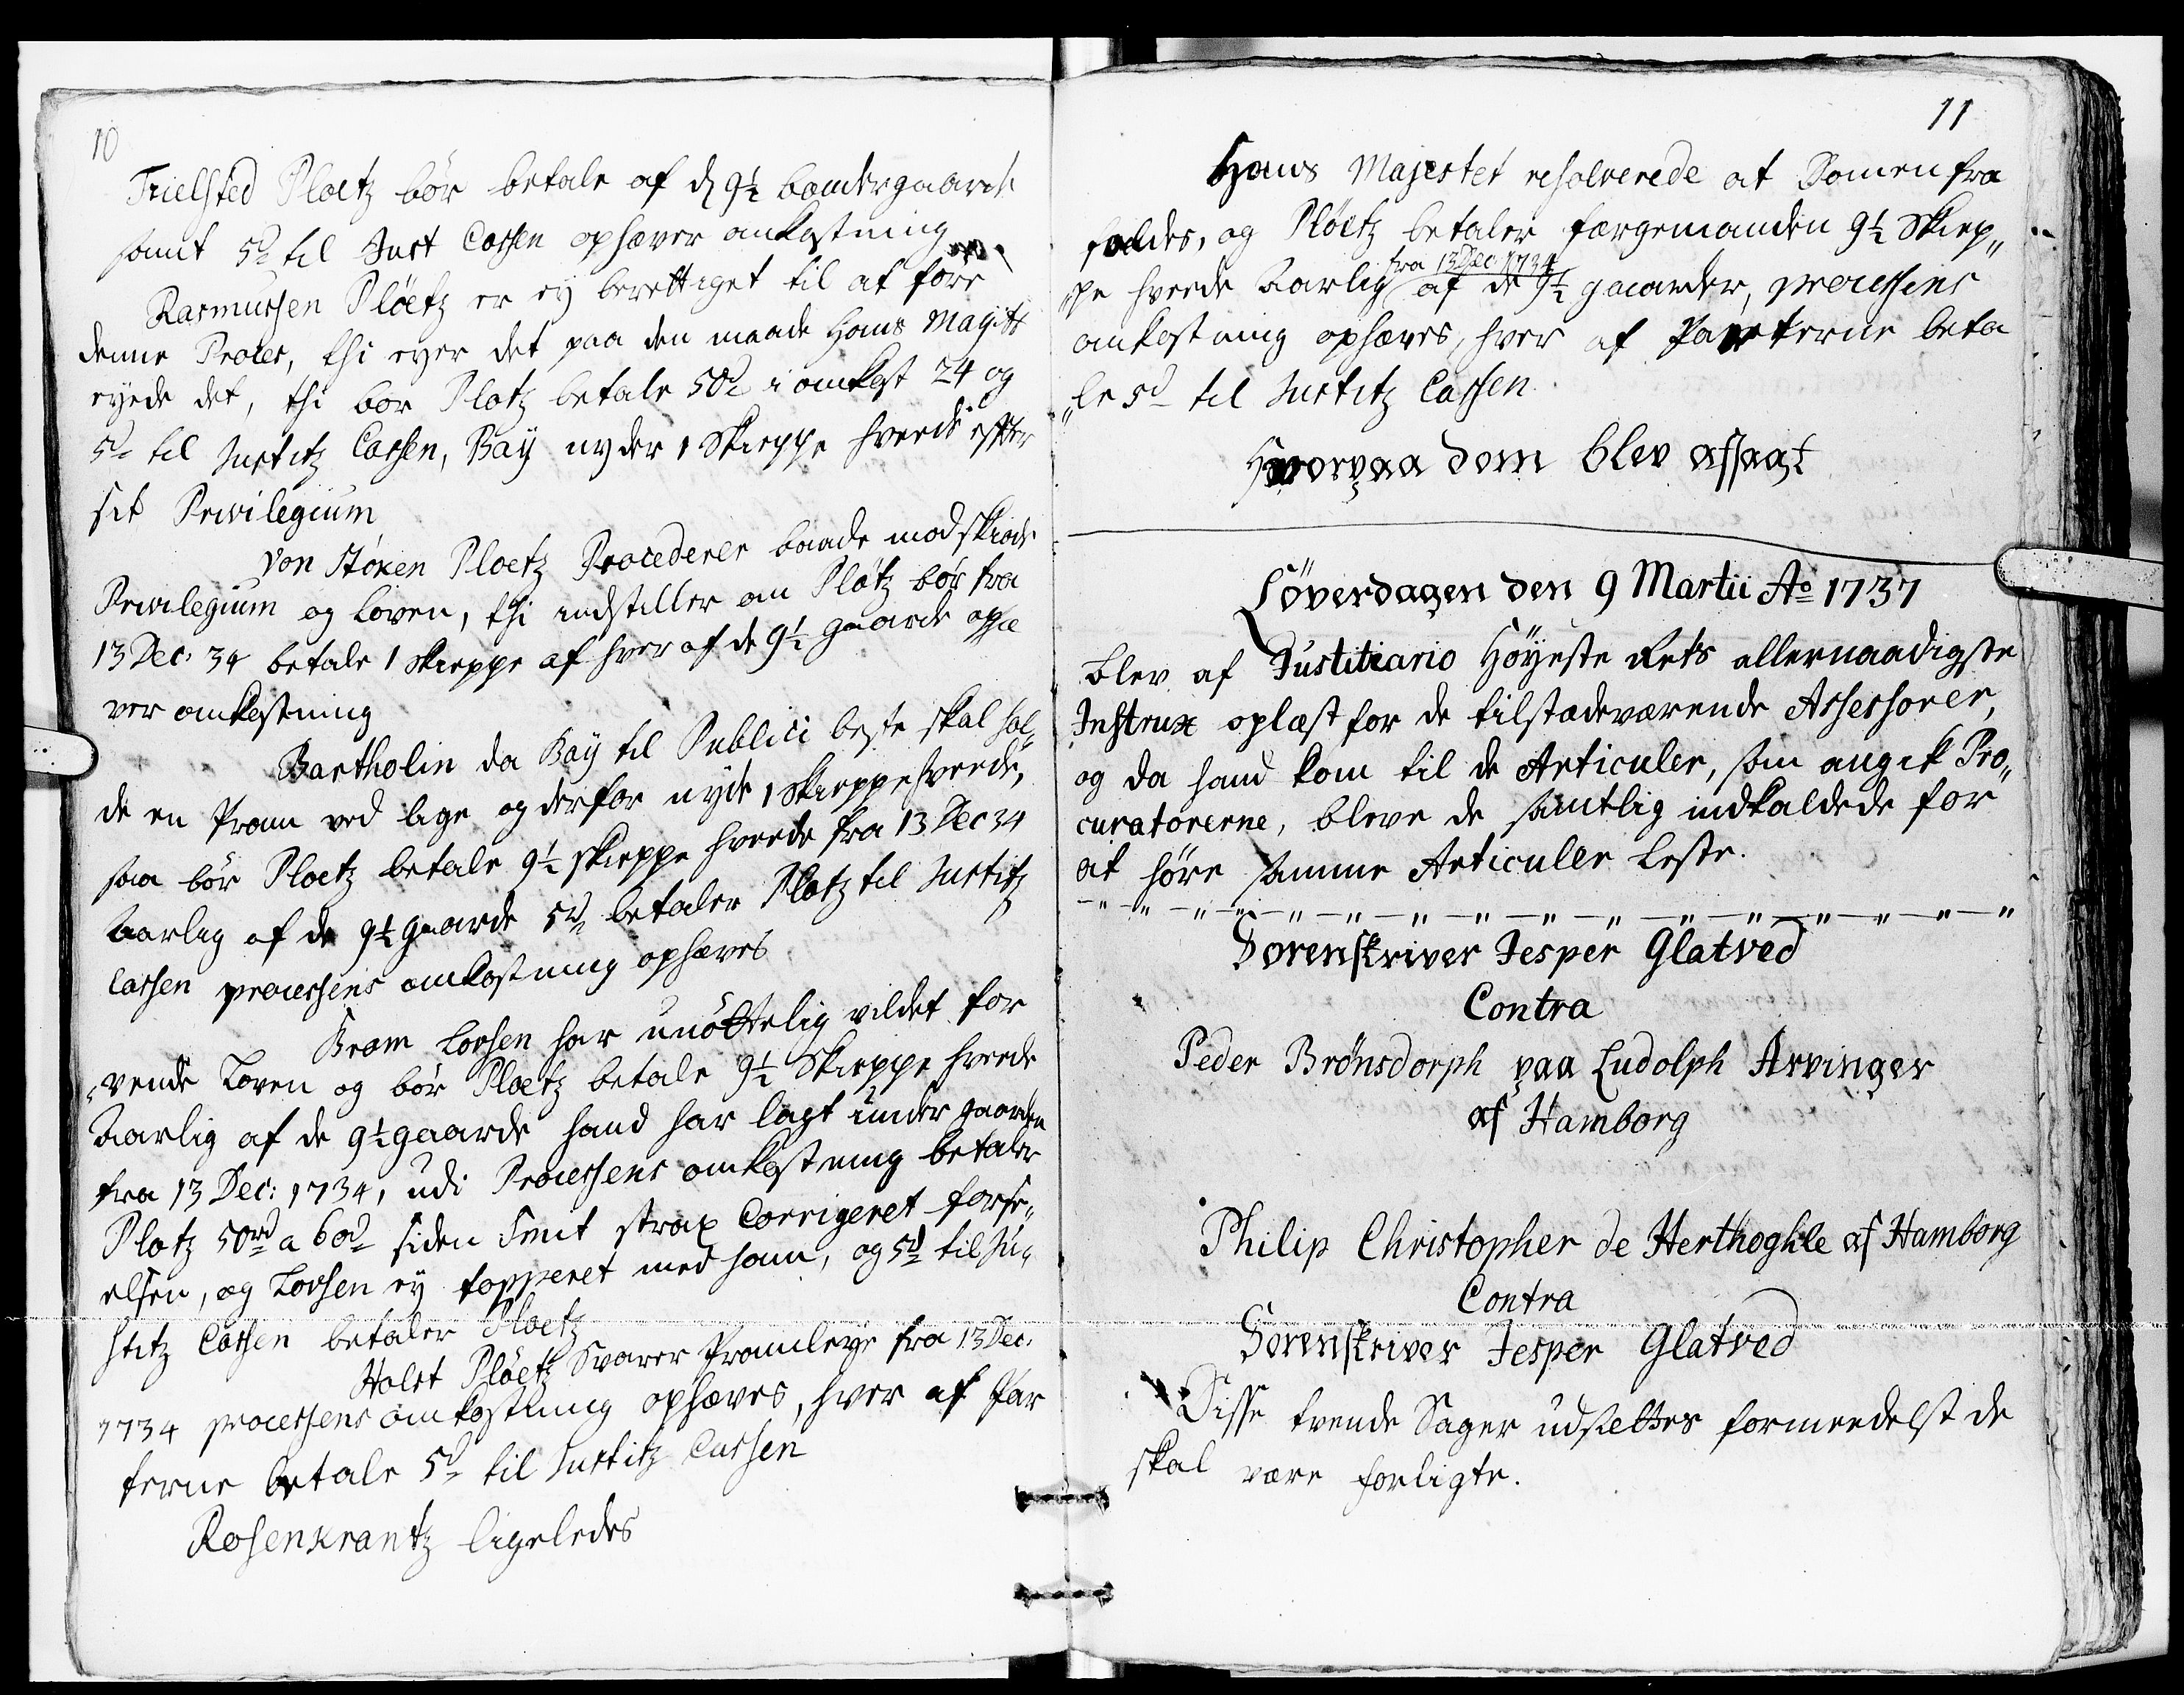 10
Trielsted Ploetz bör betale af d 9½ bøndergaarde
samt 5d til Just Cassen ophæver omkostning
Rasmussen Plöetz er ey berettiget til at före
denne Proces, thi eyer det paa den maade Hans Magitt
eyede det, thi bör Plötz betale 50d i omkost 24 og
5d til Justitz Cassen, Baÿ nyder 1 Skieppe hvede efter
sit Privilegium
Von Støken Ploetz Procederer baade mod skiöde
Privilegium og Loven, thi indstiller om Plötz bör fra
13 Dec: 34 betale 1 skieppe af hver af de 9½ gaarde ophæ
ver omkostning
Bartholin da Baÿ til Publici beste skal hol„
de en Pram ved lige og derfor nyde 1 Skieppe hvede,
saa bör Ploetz betale 9½ skieppe hvede fra 13 Dec 34
Aarlig af de 9½ gaarde 5d betaler Plötz til Justitz
Cassen processens omkostning ophæves
Bram Lovsen har unöttelig vildet for
„vende Loven og bör Ploetz betale 9½ Skieppe hvede
Aarlig af de 9½ gaarde hand har lagt under gaarden
fra 13 Dec: 1734, udi Processens omkostning betaler
Plötz 50rd a 60d siden Smit strax Corrigeret forse„
elsen, og Lovsen ey topperet med ham, og 5d til Ju„
stitz Cassen betaler Ploetz
Holst Plöetz Svarer Pramleye fra 13 Dec:
1734 processens omkostning ophæves, hver af Par
terne betale 5d til Justitz Cassen
Rosenkrantz ligeledes
11
Hans Majestet resolverede at Domen fra
faldes, og Plöetz betaler færgemanden 9½ Skiep„
fra 13 Dec: 1734
„pe hvede Aarlig af de 9½ gaarder, processens
omkostning ophæves, hver af Parterne beta
„le 5d til Justitz Cassen
Hvorpaa dom blev afsagt
Löverdagen den 9 Martii Ao 1737
blev af Justitiario Höyeste Rets allernaadigste
Instrux oplæst for de tilstædeværende Assessorer,
og da hand kom til de Articuler, som angik Pro„
curatorerne, bleve de samtlig indkaldede for
at höre samme Articuler leste.
Sorenskriver Jesper Glatved
Contra
Peder Brönsdorph paa Ludolph Arvinger
af Hamborg
Philip Christopher de Herthoghe af Hamborg
Contra
Sorenskriver Jesper Glatved
Disse tvende Sager udsættes formeedelst de
skal være forligte.